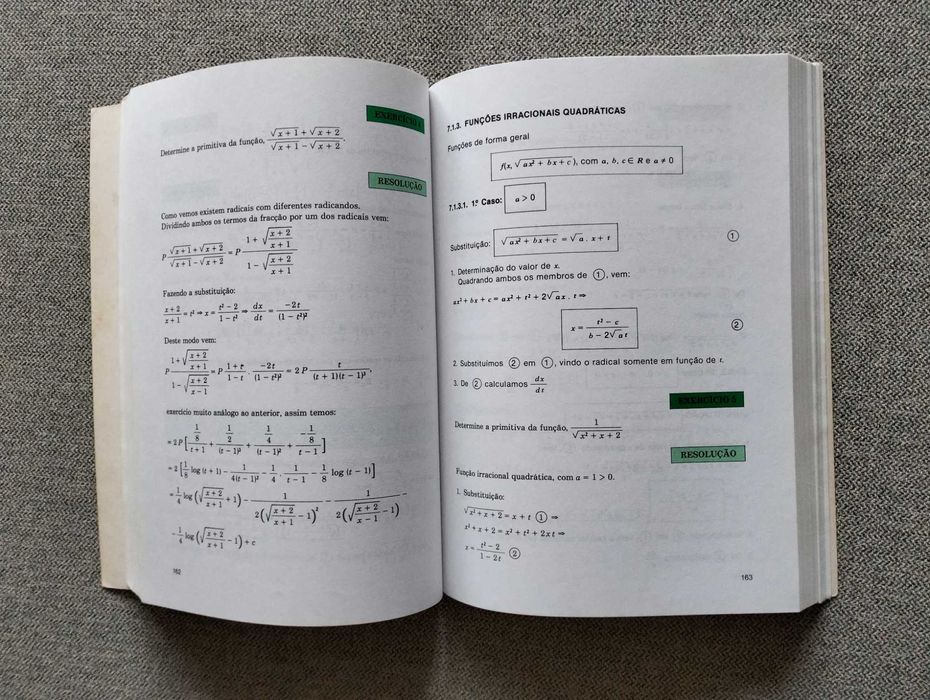 EXERCÍCIO 4
Determine a primitiva da função, (√(x + 1) + √(x + 2))/(√(x + 1) − √(x + 2)).
RESOLUÇÃO
Como vemos existem radicais com diferentes radicandos.
Dividindo ambos os termos da fracção por um dos radicais vem:
P (√(x + 1) + √(x + 2))/(√(x + 1) − √(x + 2)) = P (1 + √((x + 2)/(x + 1)))/(1 − √((x + 2)/(x + 1)))
Fazendo a substituição:
(x + 2)/(x + 1) = t² ⇒ x = (t² − 2)/(1 − t²) ⇒ dx/dt = −2t/(1 − t²)²
Deste modo vem:
P (1 + √((x + 2)/(x + 1)))/(1 − √((x + 2)/(x − 1))) = P (1 + t)/(1 − t) . −2t/(1 − t²)² = 2 P t/((t + 1)(t − 1)³),
exercício muito análogo ao anterior, assim temos:
= 2 P [(1/8)/(t + 1) + (1/2)/(t − 1)³ + (1/4)/(t − 1)² + (−1/8)/(t − 1)]
= 2 [1/8 log (t + 1) − 1/(4(t − 1)²) − 1/4 . 1/(t − 1) − 1/8 log (t − 1)]
= 1/4 log (√((x + 2)/(x + 1)) + 1) − 1/(2(√((x + 2)/(x + 1)) − 1)²) − 1/(2(√((x + 2)/(x − 1)) − 1)) −
− 1/4 log (√((x + 2)/(x + 1)) − 1) + c
162
7.1.3. FUNÇÕES IRRACIONAIS QUADRÁTICAS
Funções de forma geral
f(x, √(ax² + bx + c)), com a, b, c ∈ R e a ≠ 0
7.1.3.1. 1.º Caso: a > 0
Substituição: √(ax² + bx + c) = √a . x + t ①
1. Determinação do valor de x.
Quadrando ambos os membros de ①, vem:
ax² + bx + c = ax² + t² + 2√a x . t ⇒
x = (t² − c)/(b − 2√a t) ②
2. Substituímos ② em ①, vindo o radical somente em função de t.
3. De ② calculamos dx/dt
EXERCÍCIO 5
Determine a primitiva da função, 1/√(x² + x + 2)
RESOLUÇÃO
Função irracional quadrática, com a = 1 > 0.
1. Substituição:
√(x² + x + 2) = x + t ① ⇒
x² + x + 2 = x² + t² + 2xt ⇒
x = (t² − 2)/(1 − 2t) ②
163